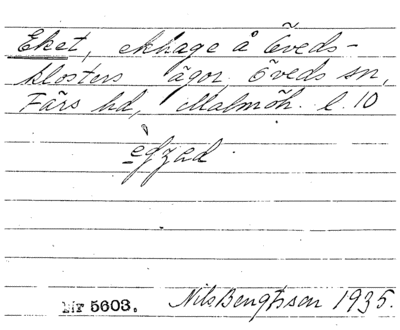 Eket, ekhage å Öveds-
klosters ägor. Öveds sn,
Färs hd, Malmöh. l. 10
Nº 5603. Nils Bengtsson 1935.